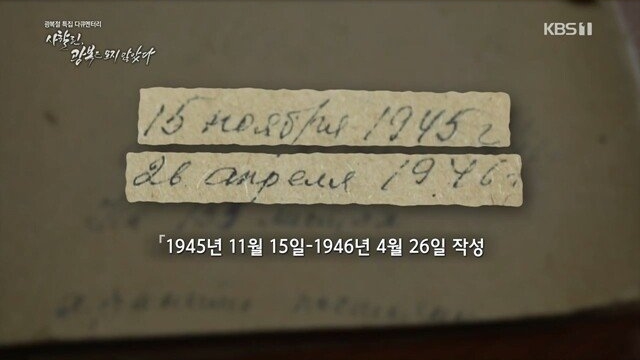 광복절 특집 다큐멘터리
사할린,
광복은 오지 않았다
KBS1
15 ноября 1945 г
26 апреля 1946 г
「1945년 11월 15일-1946년 4월 26일 작성